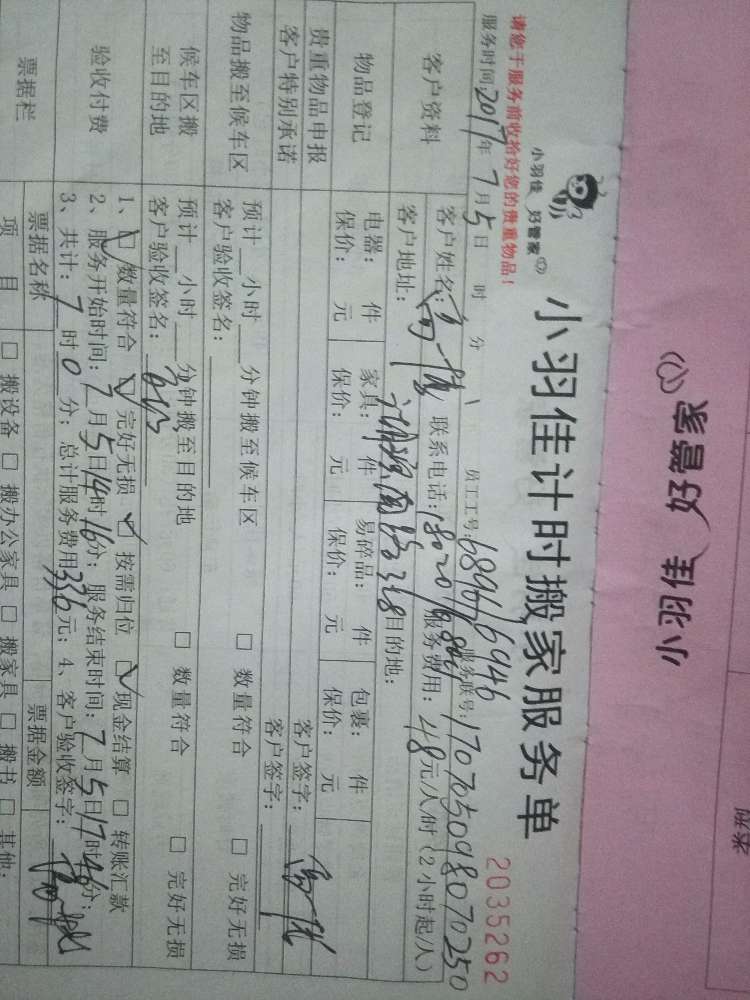 小羽佳 好管家
小羽佳计时搬家服务单
小羽佳 好管家
2035262
请您于服务前收拾好您的贵重物品!
服务时间2017年7月5日 时 分 员工工号: 服务联号:170705098070250
客户资料
客户姓名: 联系电话: 服务费用:48元/人/时(2小时起/人)
客户地址: 目的地:
物品登记
电器: 件 家具: 件 易碎品: 件 包裹: 件
保价: 元 保价: 元 保价: 元 保价: 元
贵重物品申报 客户签字:
客户特别承诺 客户签字:
物品搬至候车区
预计 小时 分钟搬至候车区 □ 数量符合 □ 完好无损
客户验收签名:
候车区搬至目的地
预计 小时 分钟搬至目的地 □ 数量符合 □ 完好无损
客户验收签名:
验收付费
1、☑ 数量符合 ☑ 完好无损 ☑ 按需归位 ☑ 现金结算 □ 转账汇款
2、服务开始时间:7月5日14时16分;服务结束时间:7月5日17时46分;
3、共计:7时0分;总计服务费用336元;4、客户验收签字:
票据栏
票据名称 票据金额
项 目 □ 搬设备 □ 搬办公家具 □ 搬家具 □ 搬书 □ 其他: